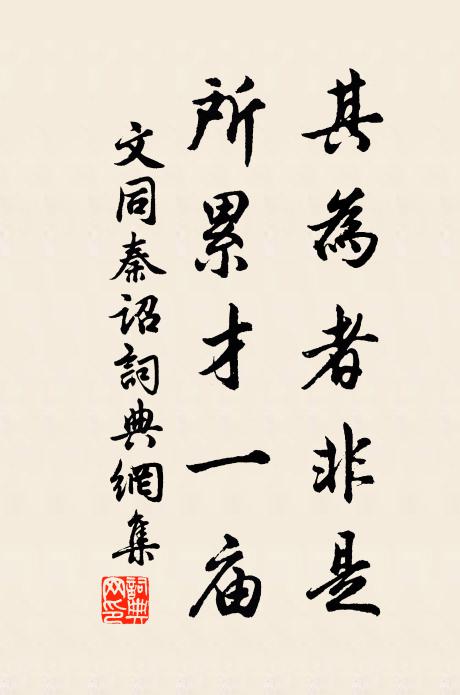 其為者非是
所累才一庙
文同秦诏詞典網集
詞典
网印